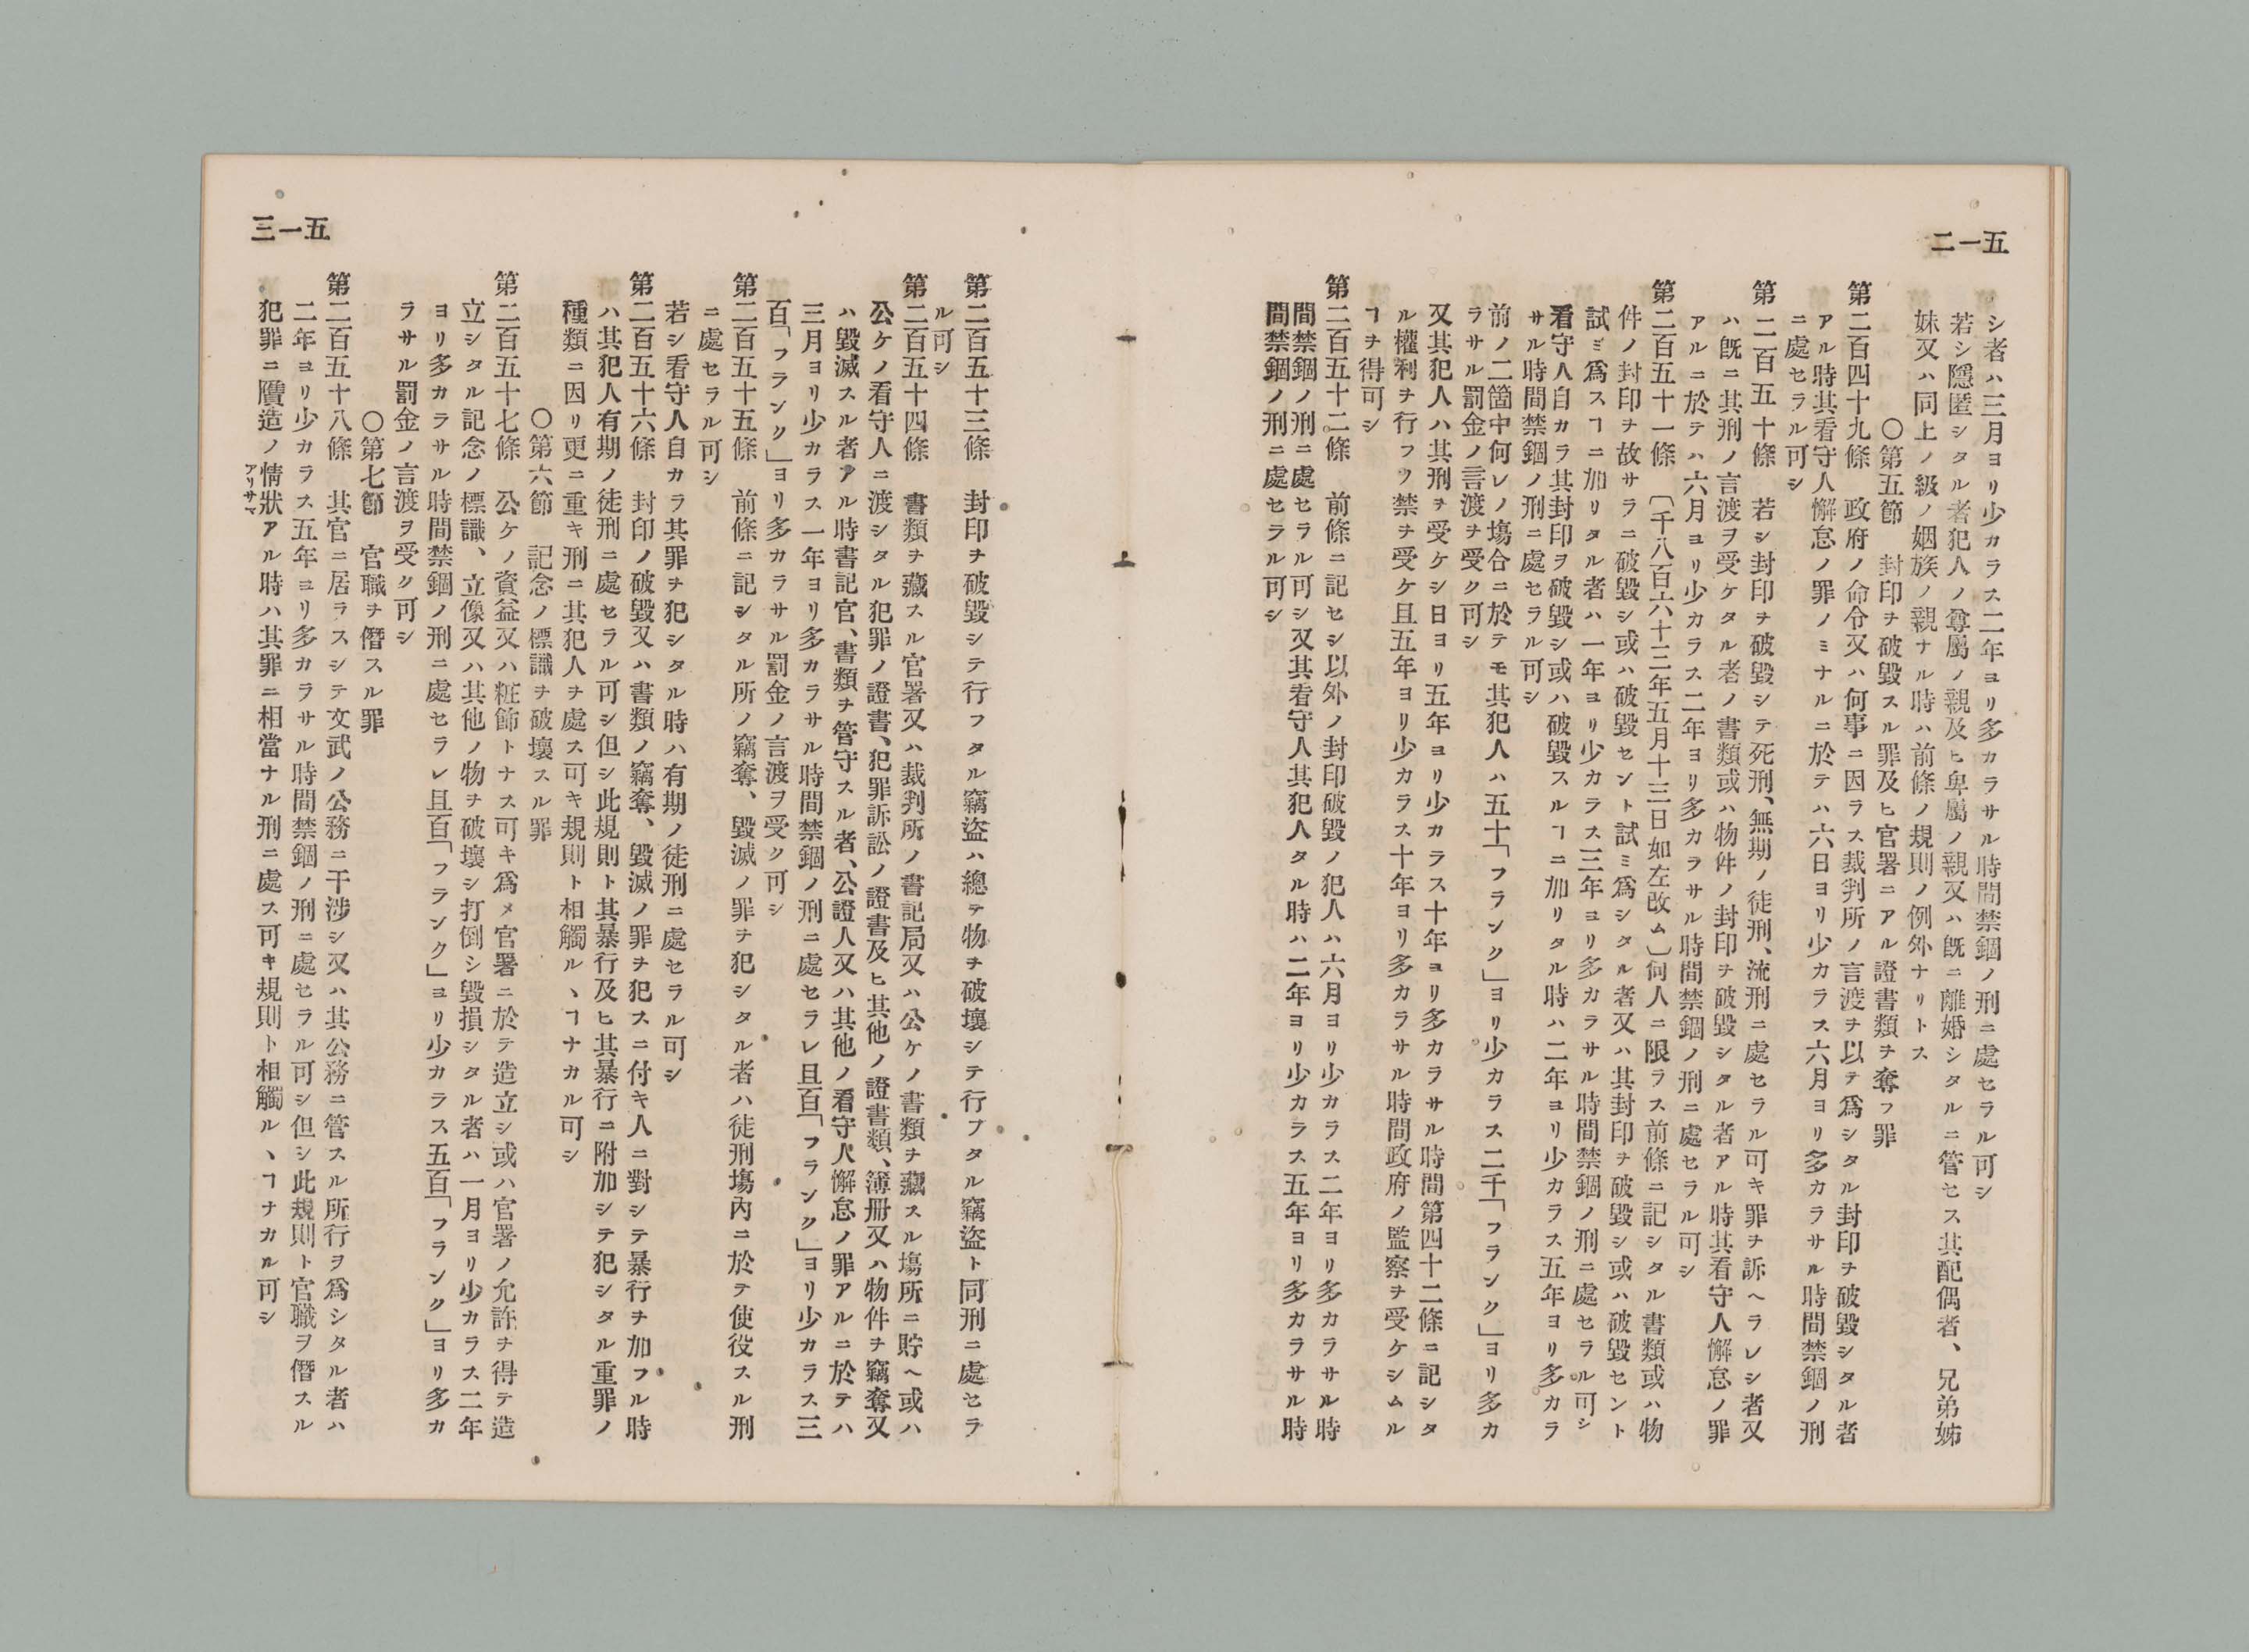 五一二
シ者ハ三月ヨリ少カラス二年ヨリ多カラサル時間禁錮ノ刑ニ處セラル可シ
若シ隱匿シタル者犯人ノ尊屬ノ親及ヒ卑屬ノ親又ハ既ニ離婚シタルニ管セス其配偶者、兄弟姊
妹又ハ同上ノ級ノ姻族ノ親ナル時ハ前條ノ規則ノ例外ナリトス
〇第五節　封印ヲ破毀スル罪及ヒ官署ニアル證書類ヲ奪フ罪
第二百四十九條　政府ノ命令又ハ何事ニ因ラス裁判所ノ言渡ヲ以テ爲シタル封印ヲ破毀シタル者
アル時其看守人懈怠ノ罪ノミナルニ於テハ六日ヨリ少カラス六月ヨリ多カラサル時間禁錮ノ刑
ニ處セラル可シ
第二百五十條　若シ封印ヲ破毀シテ死刑、無期ノ徒刑、流刑ニ處セラル可キ罪ヲ訴ヘラレシ者又
ハ既ニ其刑ノ言渡ヲ受ケタル者ノ書類或ハ物件ノ封印ヲ破毀シタル者アル時其看守人懈怠ノ罪
アルニ於テハ六月ヨリ少カラス二年ヨリ多カラサル時間禁錮ノ刑ニ處セラル可シ
第二百五十一條　〔千八百六十三年五月十三日如左改ム〕何人ニ限ラス前條ニ記シタル書類或ハ物
件ノ封印ヲ故サラニ破毀シ或ハ破毀セント試ミ爲シタル者又ハ其封印ヲ破毀シ或ハ破毀セント
試ミ爲スヿニ加リタル者ハ一年ヨリ少カラス三年ヨリ多カラサル時間禁錮ノ刑ニ處セラル可シ
看守人自カラ其封印ヲ破毀シ或ハ破毀スルヿニ加リタル時ハ二年ヨリ少カラス五年ヨリ多カラ
サル時間禁錮ノ刑ニ處セラル可シ
前ノ二箇中何レノ塲合ニ於テモ其犯人ハ五十「フランク」ヨリ少カラス二千「フランク」ヨリ多カ
ラサル罰金ノ言渡ヲ受ク可シ
又其犯人ハ其刑ヲ受ケシ日ヨリ五年ヨリ少カラス十年ヨリ多カラサル時間第四十二條ニ記シタ
ル權利ヲ行フヲ禁ヲ受ケ且五年ヨリ少カラス十年ヨリ多カラサル時間政府ノ監察ヲ受ケシムル
ヿヲ得可シ
第二百五十二條　前條ニ記セシ以外ノ封印破毀ノ犯人ハ六月ヨリ少カラス二年ヨリ多カラサル時
間禁錮ノ刑ニ處セラル可シ又其看守人其犯人タル時ハ二年ヨリ少カラス五年ヨリ多カラサル時
間禁錮ノ刑ニ處セラル可シ
五一三
第二百五十三條　封印ヲ破毀シテ行フタル竊盜ハ總テ物ヲ破壞シテ行フタル竊盜ト同刑ニ處セラ
ル可シ
第二百五十四條　書類ヲ藏スル官署又ハ裁判所ノ書記局又ハ公ケノ書類ヲ藏スル塲所ニ貯ヘ或ハ
公ケノ看守人ニ渡シタル犯罪ノ證書、犯罪訴訟ノ證書及ヒ其他ノ證書類、簿册又ハ物件ヲ竊奪又
ハ毀滅スル者アル時書記官、書類ヲ管守スル者、公證人又ハ其他ノ看守人懈怠ノ罪アルニ於テハ
三月ヨリ少カラス一年ヨリ多カラサル時間禁錮ノ刑ニ處セラレ且百「フランク」ヨリ少カラス三
百「フランク」ヨリ多カラサル罰金ノ言渡ヲ受ク可シ
第二百五十五條　前條ニ記シタル所ノ竊奪、毀滅ノ罪ヲ犯シタル者ハ徒刑塲內ニ於テ使役スル刑
ニ處セラル可シ
若シ看守人自カラ其罪ヲ犯シタル時ハ有期ノ徒刑ニ處セラル可シ
第二百五十六條　封印ノ破毀又ハ書類ノ竊奪、毀滅ノ罪ヲ犯スニ付キ人ニ對シテ暴行ヲ加フル時
ハ其犯人有期ノ徒刑ニ處セラル可シ但シ此規則ト其暴行及ヒ其暴行ニ附加シテ犯シタル重罪ノ
種類ニ因リ更ニ重キ刑ニ其犯人ヲ處ス可キ規則ト相觸ルヽヿナカル可シ
〇第六節　記念ノ標識ヲ破壞スル罪
第二百五十七條　公ケノ資益又ハ粧飾トナス可キ爲メ官署ニ於テ造立シ或ハ官署ノ允許ヲ得テ造
立シタル記念ノ標識、立像又ハ其他ノ物ヲ破壞シ打倒シ毀損シタル者ハ一月ヨリ少カラス二年
ヨリ多カラサル時間禁錮ノ刑ニ處セラレ且百「フランク」ヨリ少カラス五百「フランク」ヨリ多カ
ラサル罰金ノ言渡ヲ受ク可シ
〇第七節　官職ヲ僭スル罪
第二百五十八條　其官ニ居ラスシテ文武ノ公務ニ干涉シ又ハ其公務ニ管スル所行ヲ爲シタル者ハ
二年ヨリ少カラス五年ヨリ多カラサル時間禁錮ノ刑ニ處セラル可シ但シ此規則ト官職ヲ僭スル
犯罪ニ贋造ノ情狀アル時ハ其罪ニ相當ナル刑ニ處ス可キ規則ト相觸ルヽヿナカル可シ
アリサマ